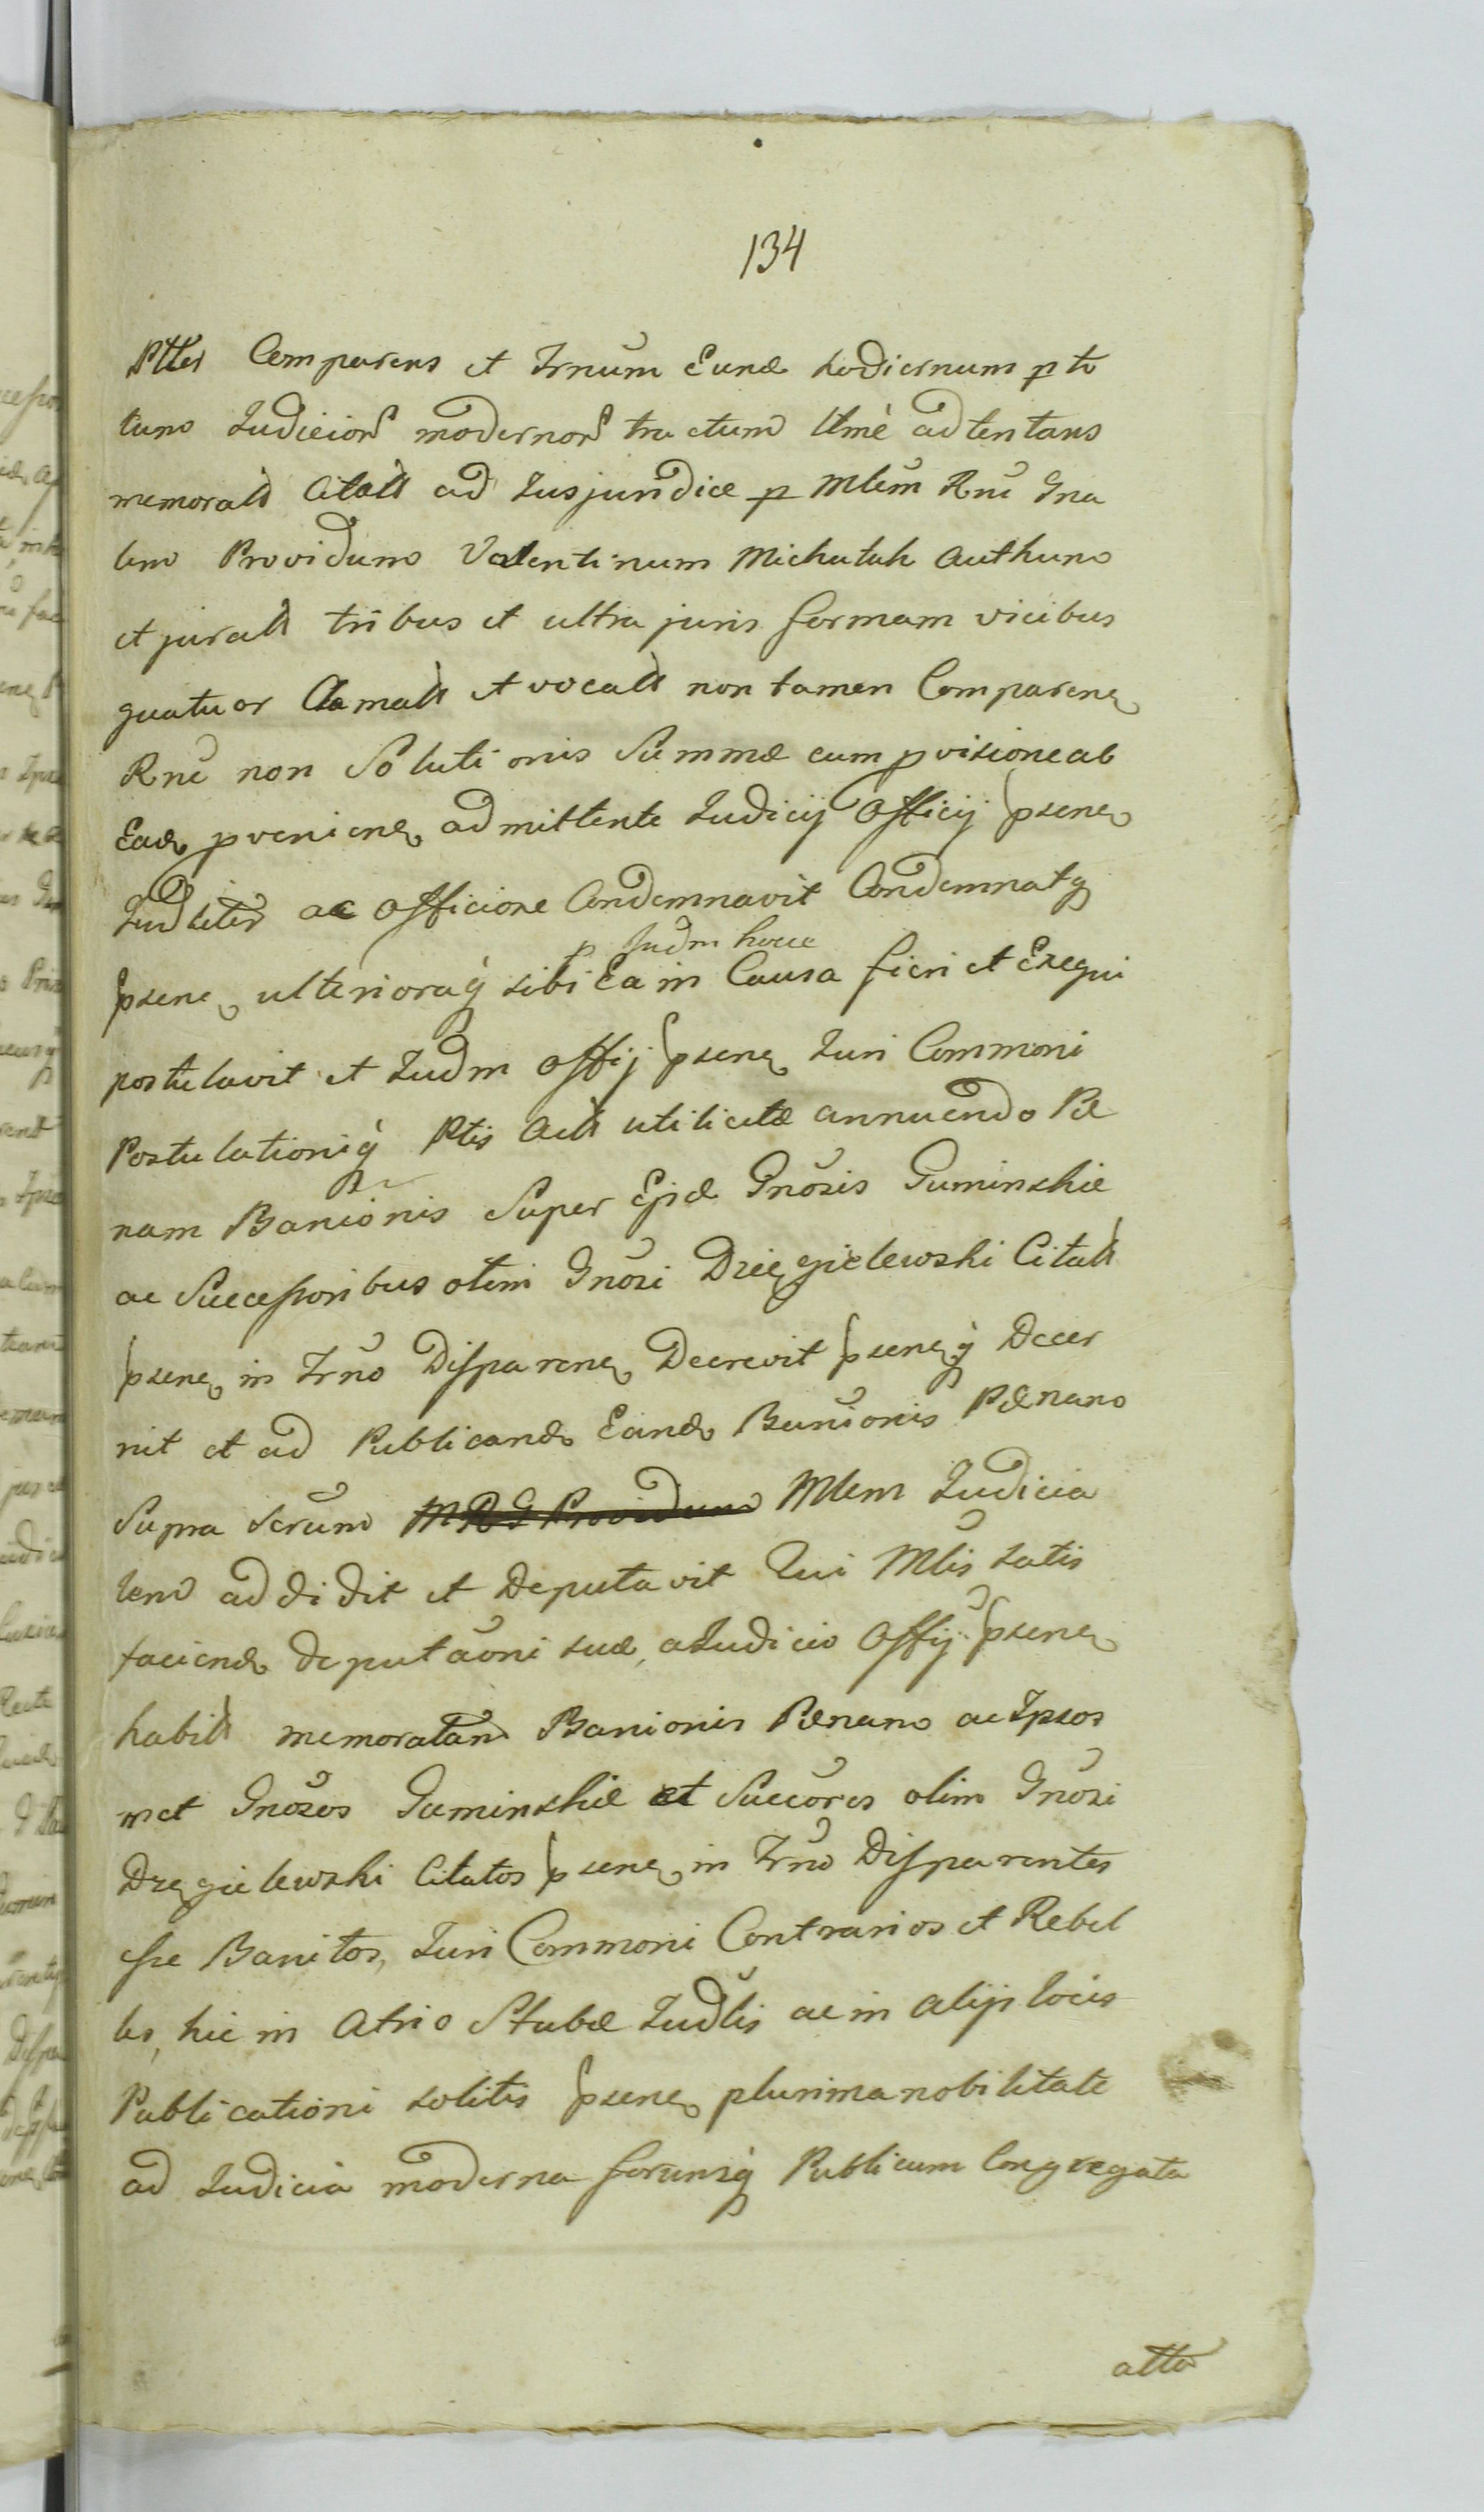 134
Ptter Comparens et Trnum Eund hodiernum p to
tum Judicior modernor tractum Ltmè adtentans
memoratt Citatt ad Jusjurdice p Mlem Rni Gna
lem Providum Valentinum Michalak Authum
et juratt tribus et ultra juris formam vicibus
quatuor Clamatt et vocatt non tamen Comparen
Rne non Solutionis Summæ cum pvisione ab
Ead pvenien admittente Judicij Officij psen
Judliter ac Officiose Condemnavit Condemnatq
p Judm hocce
psen ulterioraq sibi Ea in Causa fieri et Exequi
postulavit et Judm Offij psen Juri Commoni
Postulationiq Ptis Actt utilitatæ annuendo Pæ
nam Banionis Super Ejsd Gnosis Guminskie
ac Successoribus olim Gnosi Dzięgielewski Citatt
psen in Trno Disparen Decrevit psenq Decer
nit et ad Publicand Eand Banionis Pænam
Supra Scrum M R G Providum Mlem Judicia
lem addidit et Deputavit Qui Mlis satis
faciend deputaoni suæ, a Judicio Offij psen
habitt memoratam Banionis Pænam ac Ipsos
met Gnosos Guminskie et Succores olim Gnosi
Dzęgielewski Citatos psen in Trno Disparentes
sse Banitos, Juri Commoni Contrarios et Rebel
les, hic in Atrio Stubæ Judlis ac in alijs locis
Publicationi solitis psen plurima nobilitate
ad Judicia moderna forumq Publicum Congregata
atta